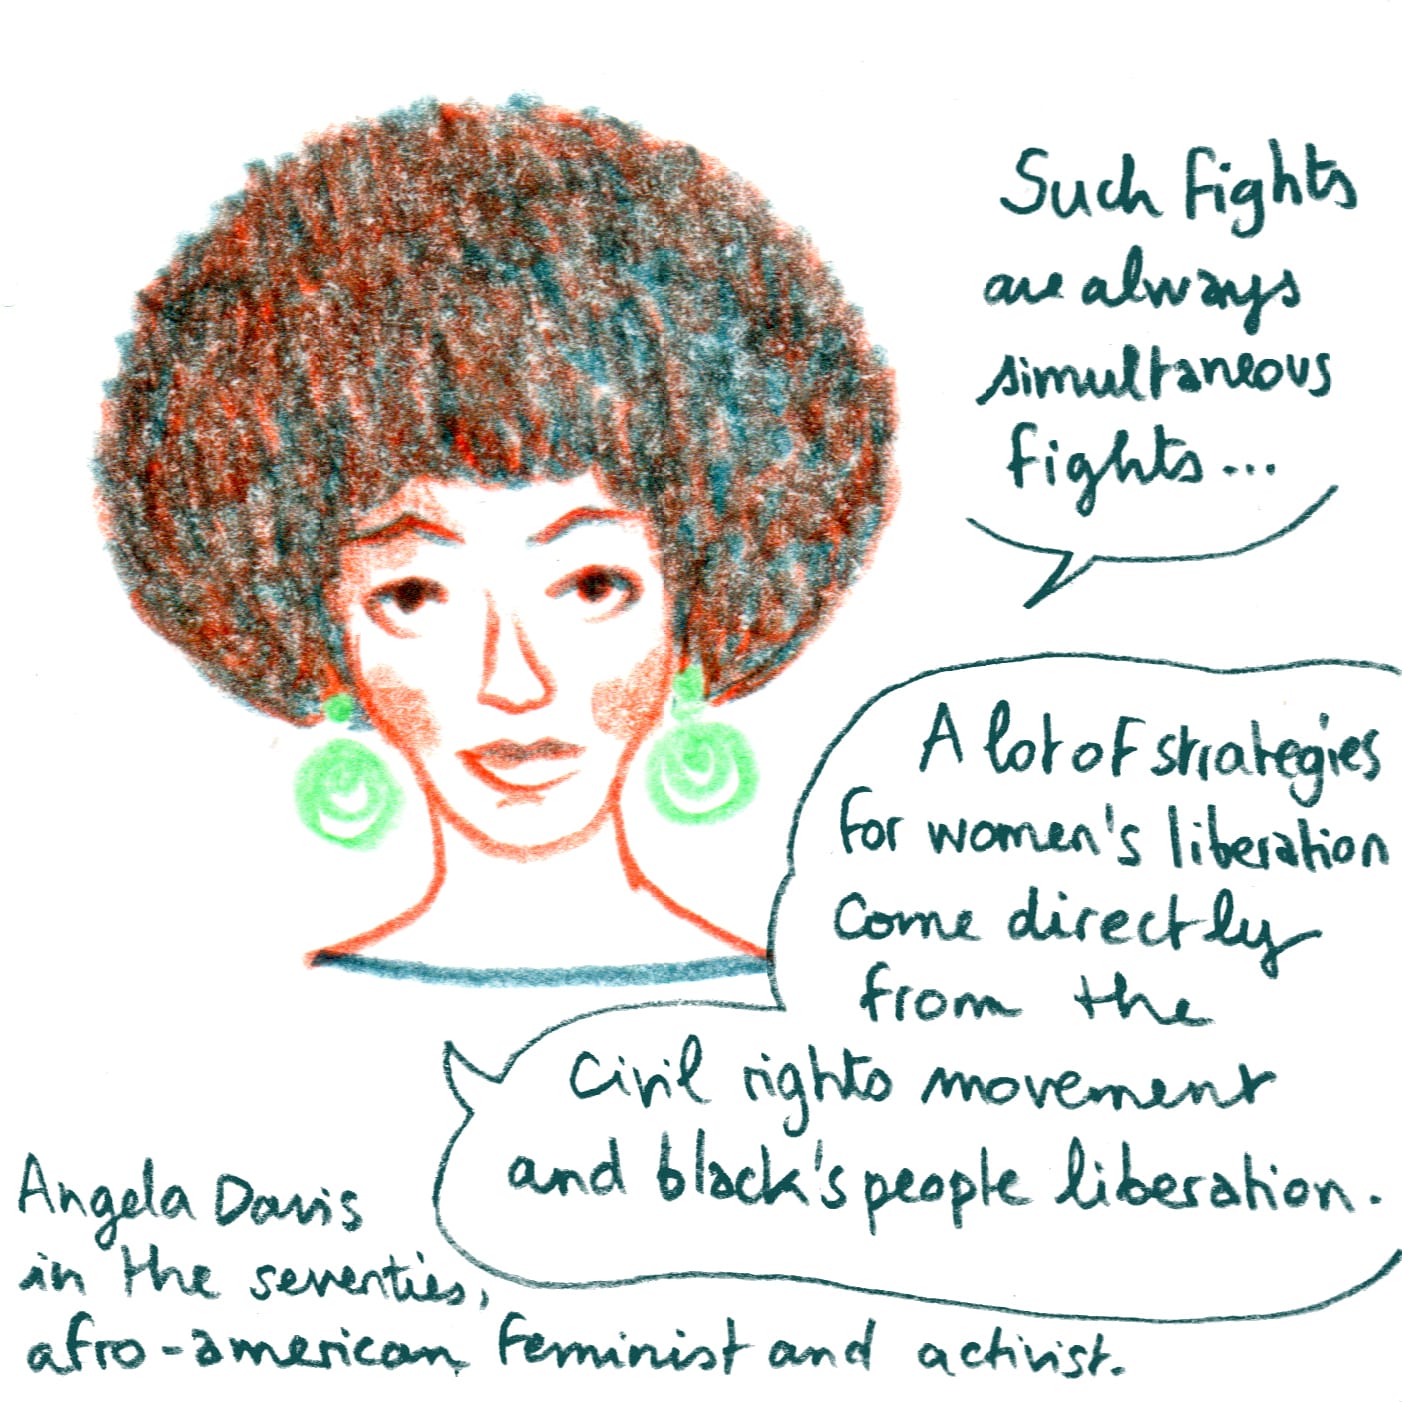 Such fights
are always
simultaneous
fights...
A lot of strategies
for women's liberation
come directly
from the
civil rights movement
and black's people liberation.
Angela Davis
in the seventies,
afro-american feminist and activist.